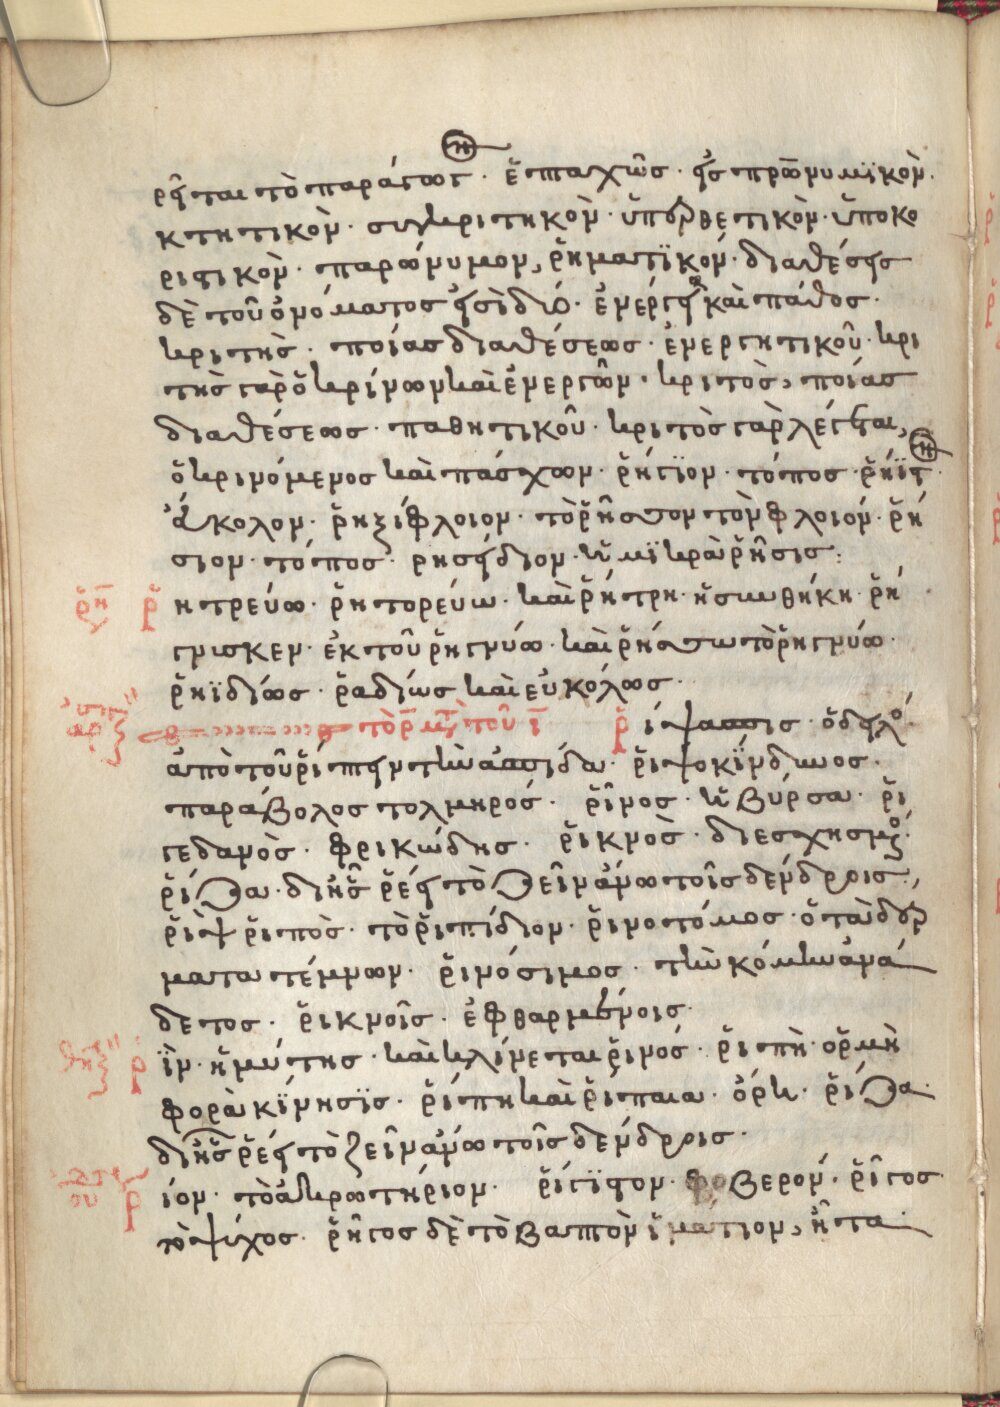 ρεῖται τὸ παράγωγ· ἑπταχῶς· εἰς πρωτονυμϊκὸν·
κτητικὸν· συγκριτηκὸν· ὑπερθετικὸν· ὑποκο
ριστικὸν· παρώνυμον, ῥηματϊκόν· διαθέσεις
δὲ τοῦ ὀνόματος εἰσὶ δύο· ἐνέργεια καὶ πάθος·
κριτὴς· ποίας διαθέσεως· ἐνεργητικοῦ· κρι
τὴς γὰρ ὁ κρίνων καὶ ἐνεργῶν· κριτὸς, ποίας
διαθέσεως· παθητικοῦ· κριτὸς γὰρ λέγεται,
ὁ κρινόμενος καὶ πάσχων· ῥήγϊον· τόπος· ῥήϊστ
εὔκολον· ῥηξίφλοιον· τὸ ῥῆσσον τὸν φλοιόν· ῥή
σιον· τόπος· ρησείδιον· ἡ μϊκρὰ ῥῆσις:
ῥητρεύω· ῥητορεύω· καὶ ῥήτρη· ἡ συνθήκη· ῥή
γνισκεν· ἐκ τοῦ ῥηγνύω· καὶ ῥήσσω τὸ ῥηγνύω·
ῥηϊδίως· ῥαδίως καὶ εὐκόλως·
τὸ ρ̄ μετὰ τοῦ ῑ ῥίψασπις· ὁ δειλὸ
ἀπὸ τοῦ ῥίπτειν τὴν ἀσπίδα· ῥιψοκίνδυνος·
παράβολος τολμηρός· ῥῖνος· ἡ βύρσα· ῥι
γεδανὸς· φρικώδης· ῥικνὸς· διεσχησμένο
ῥίζα· δι' ἧς ῥέει τὸ ζεῖν ἄνω τοῖς δένδροις,
ῥὶψ ῥιπὸς· τὸ ῥιπίδιον· ῥινοτόμος· ὁ τὰ δέρ
ματα τέμνων· ῥινόσιμος· τὴν κόμην ἀνά
δετος· ῥικνοῖς· ἐφθαρμένοις·
ῥϊν· ἡ μύτης· καὶ κλίνεται ῥινός· ῥιπὴ· ὁρμὴ
φορὰ κίνησϊς· ῥίπη καὶ ῥίπαια· ὄρη· ῥίζα·
δι' ἧς ῥέει τὸ ζεῖν ἄνω τοῖς δένδροις·
ῥίον· τὸ ἀκρωτήριον· ῥίγϊστον· φοβερόν· ῥῖγος
τὸ ψύχος· ῥῆγος δὲ τὸ βαπτὸν ἱμάτιον, ἢ στα